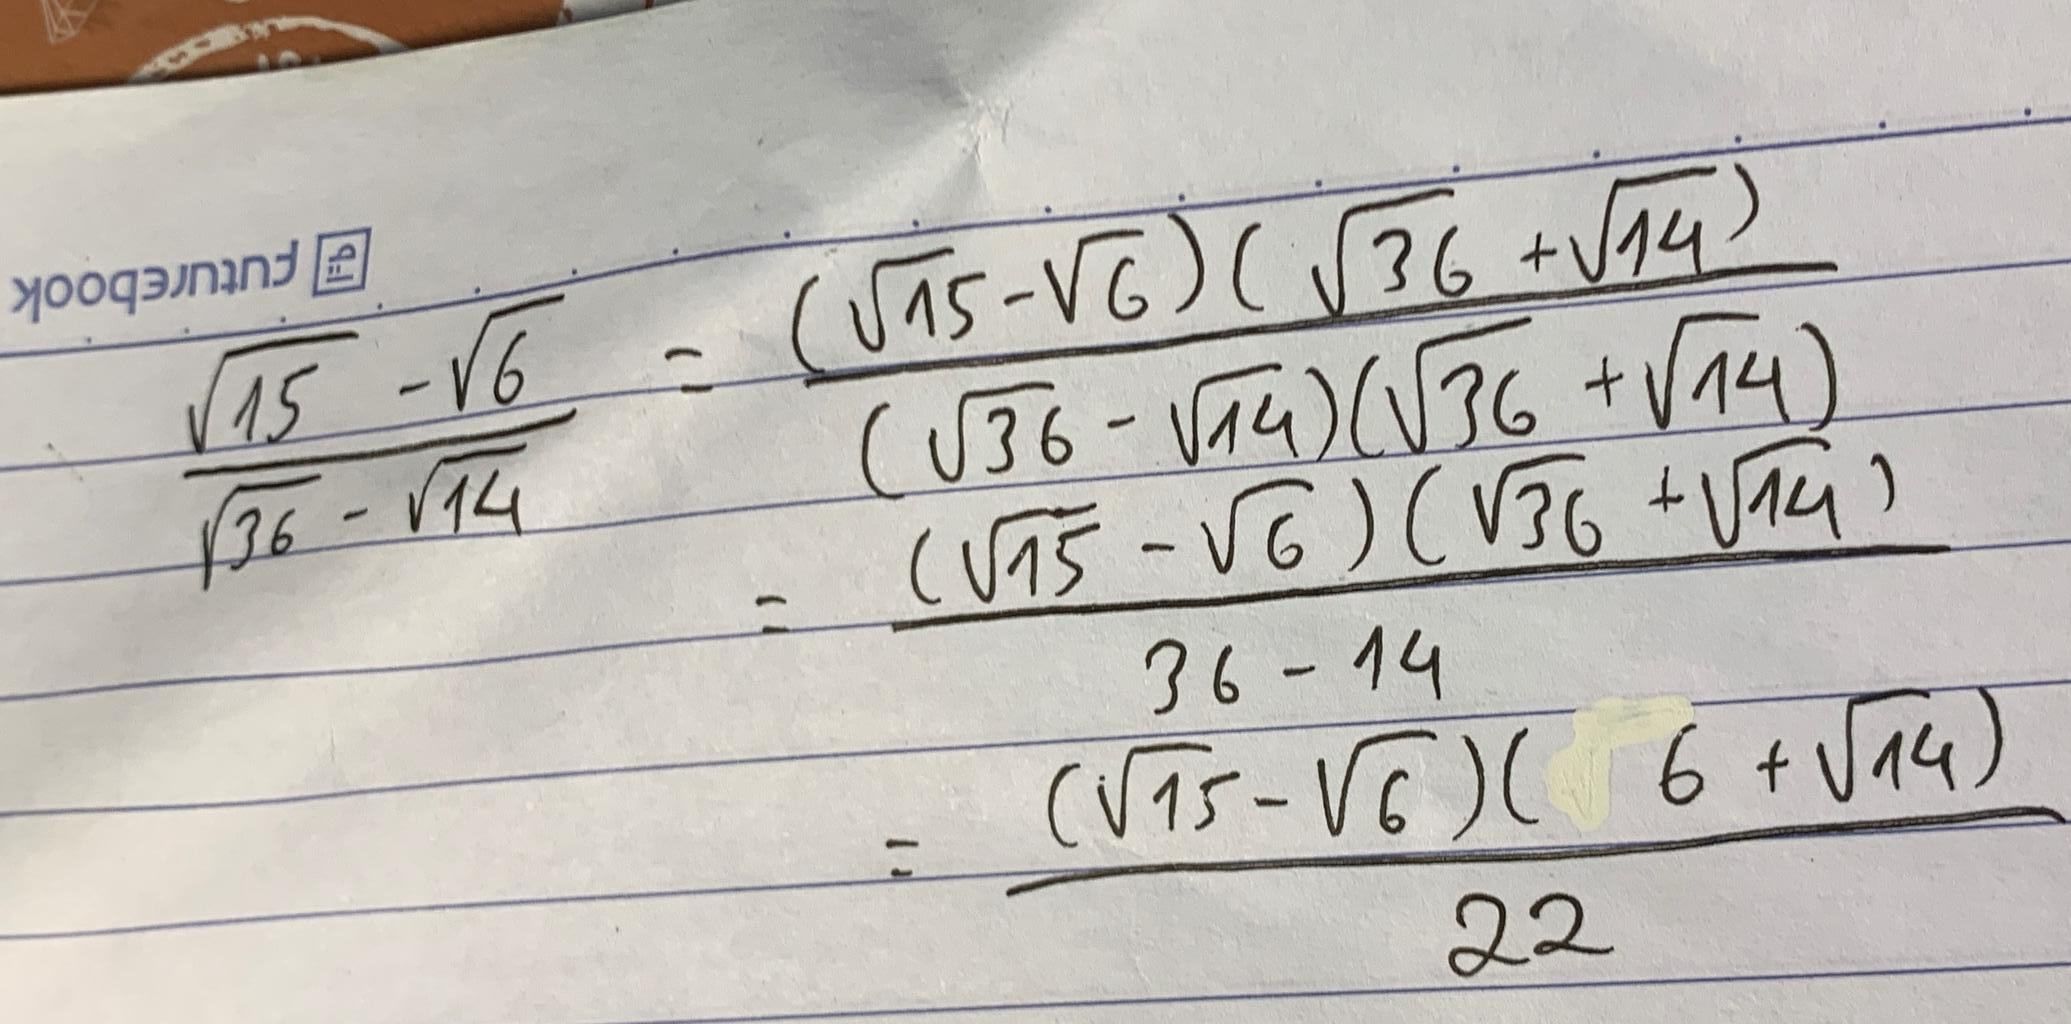 futurebook
(√15 - √6)/(√36 - √14) = ((√15 - √6)(√36 + √14))/((√36 - √14)(√36 + √14))
= ((√15 - √6)(√36 + √14))/(36 - 14)
= ((√15 - √6)(6 + √14))/22